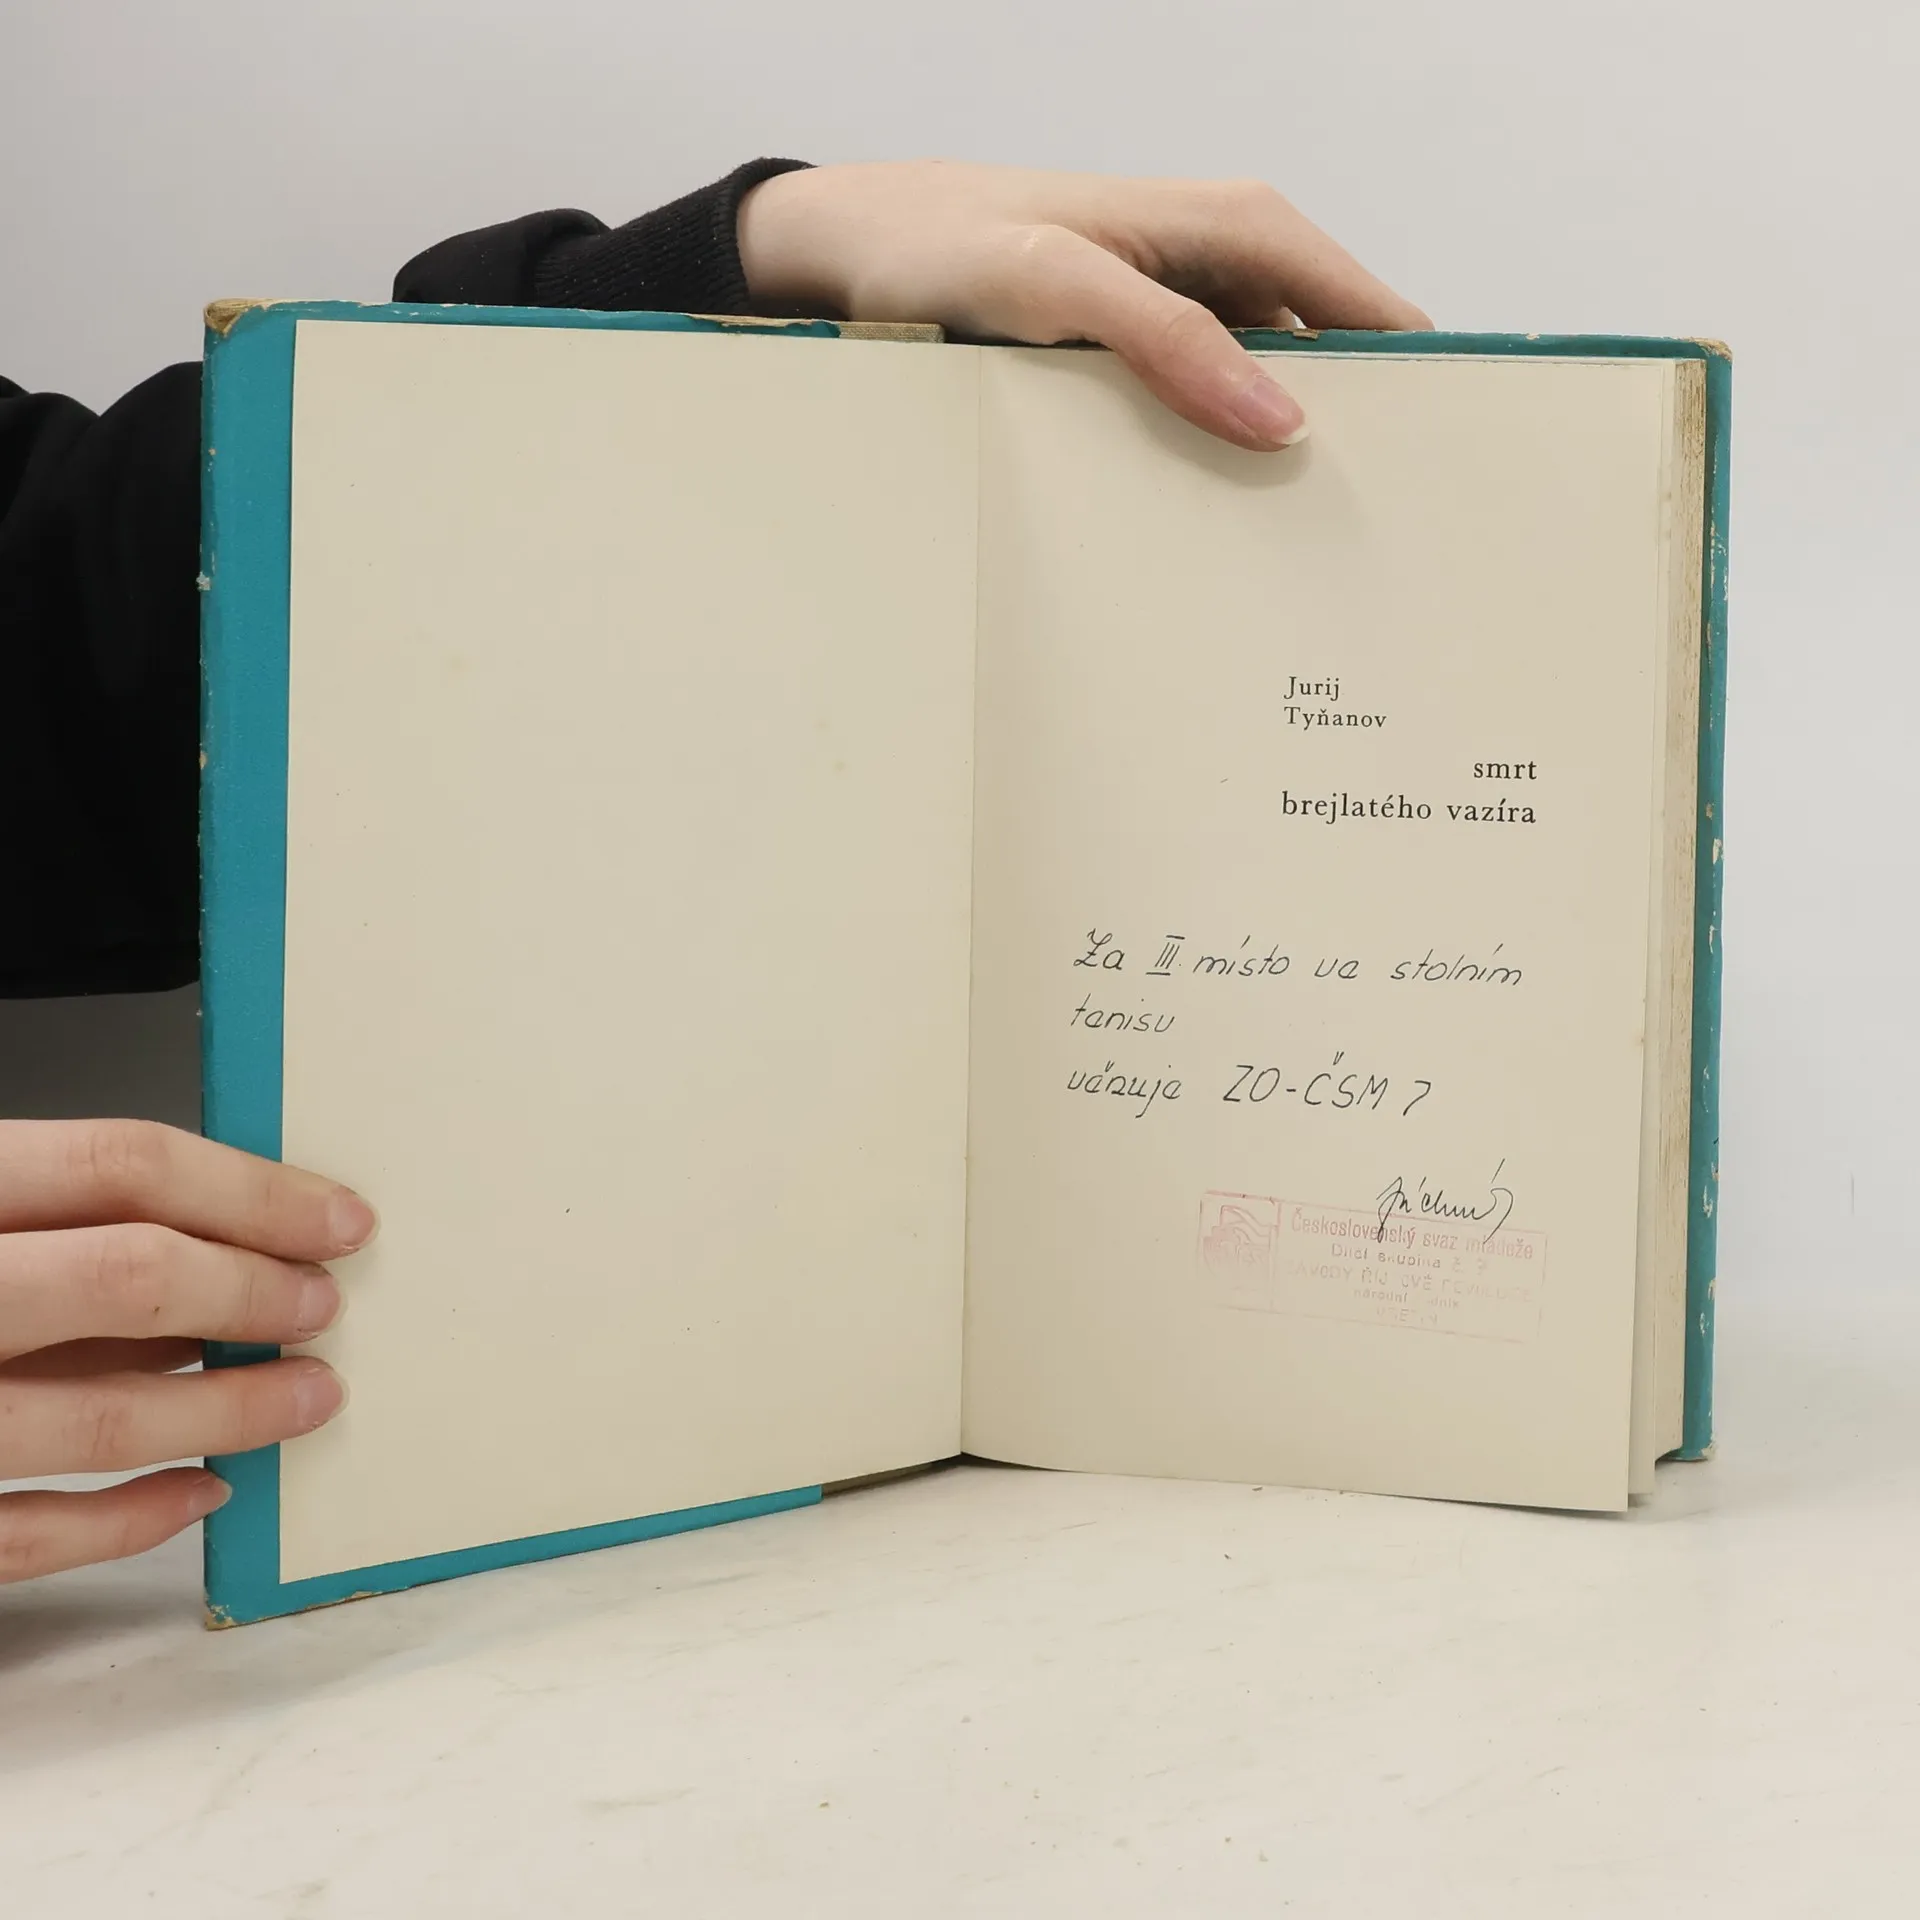 Jurij
Tyňanov
smrt
brejlatého vazíra
Za III. místo ve stolním
tenisu
věnuje ZO-ČSM 7
Československý svaz mládeže
Dílčí skupina č. 7
ZÁVODY ŘÍJNOVÉ REVOLUCE
národní podnik
VSETÍN